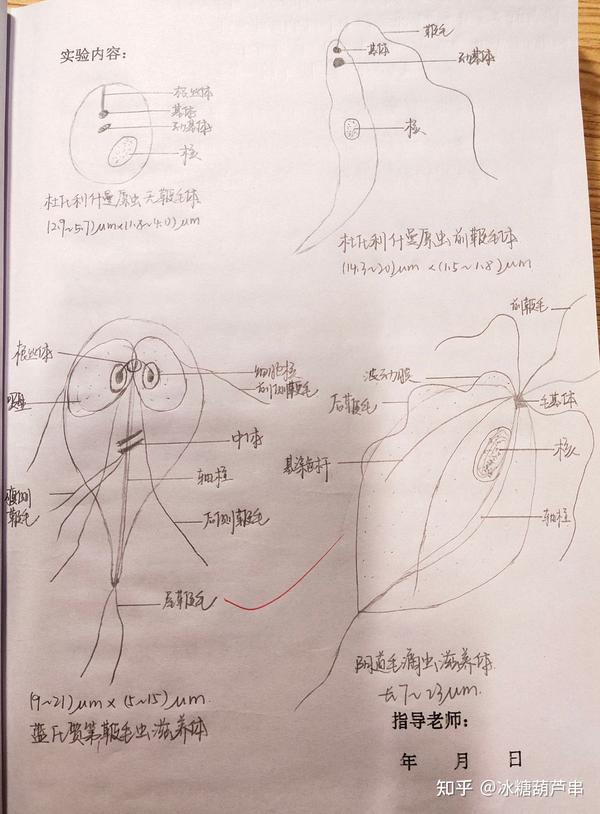 实验内容：
根丝体
基体
动基体
核
杜氏利什曼原虫无鞭毛体
(2.9~5.7)μm×(1.8~4.0)μm
鞭毛
基体
动基体
核
杜氏利什曼原虫前鞭毛体
(14.3~20)μm×(1.5~1.8)μm
根丝体
吸盘
腹侧
鞭毛
细胞核
前侧鞭毛
中体
轴柱
后侧鞭毛
尾鞭毛
(9~21)μm×(5~15)μm.
蓝氏贾第鞭毛虫滋养体
前鞭毛
波动膜
后鞭毛
毛基体
基染色杆
核
轴柱
阴道毛滴虫滋养体
长7~23μm.
指导老师：
年 月 日
知乎 @冰糖葫芦串